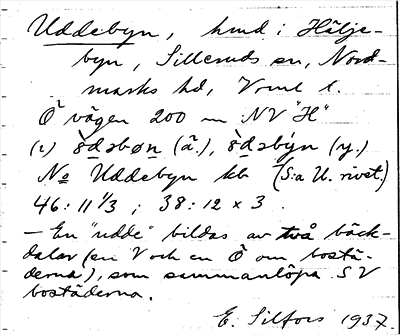 Uddebyn, hmd i Hölje-
byn, Silleruds sn, Nord-
marks hd, Vrml l.
Ö vägen 200 m NV "H"
(1) ödəbøn (ä.), ödəbýn (y.)
No Uddebyn kb (S:a U. rivet.)
46: 11 1/3 ; 38: 12 x 3.
– En "udde" bildas av två bäck-
dalar (en V och en Ö om bostä-
derna), som sammanlöpa SV
bostäderna.
E. Silfors 1937.